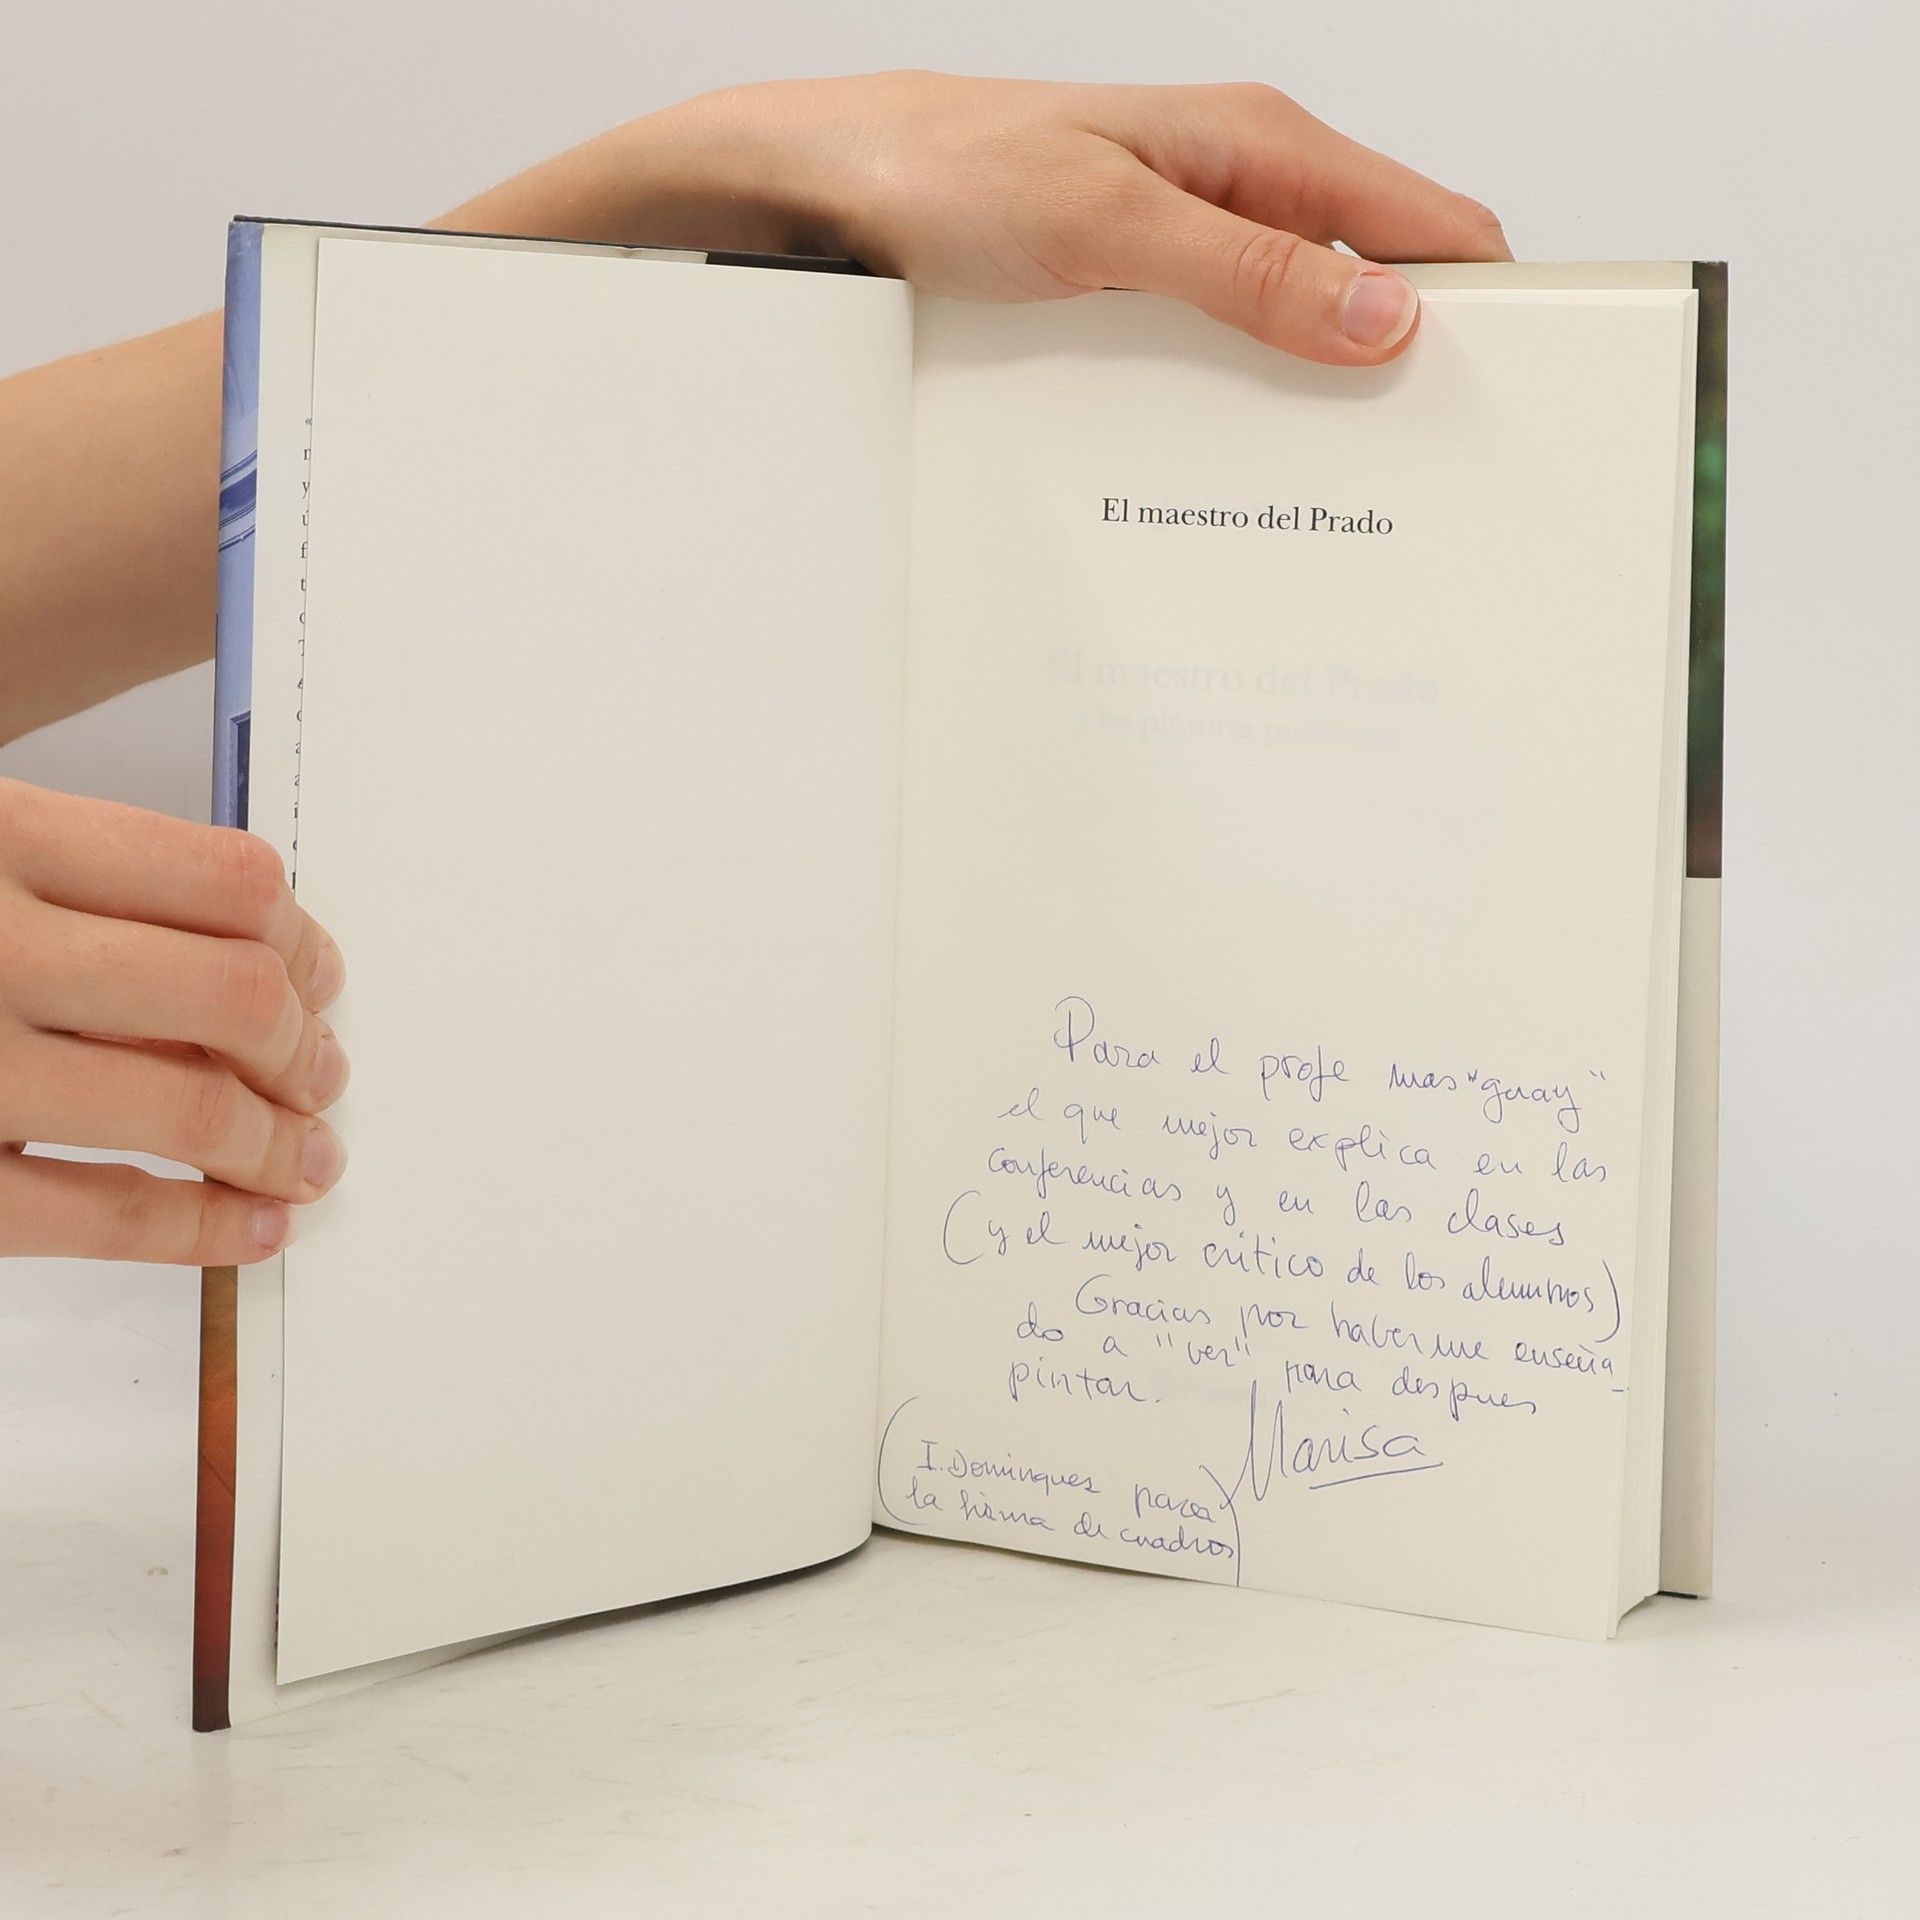 El maestro del Prado
El maestro del Prado
y las pinturas proféticas
Para el profe mas "guay"
el que mejor explica en las
conferencias y en las clases
(y el mejor critico de los alumnos)
Gracias por haberme enseña_
do a "ver" para despues
pintar.
Marisa
(I. Dominguez para
la firma de cuadros)